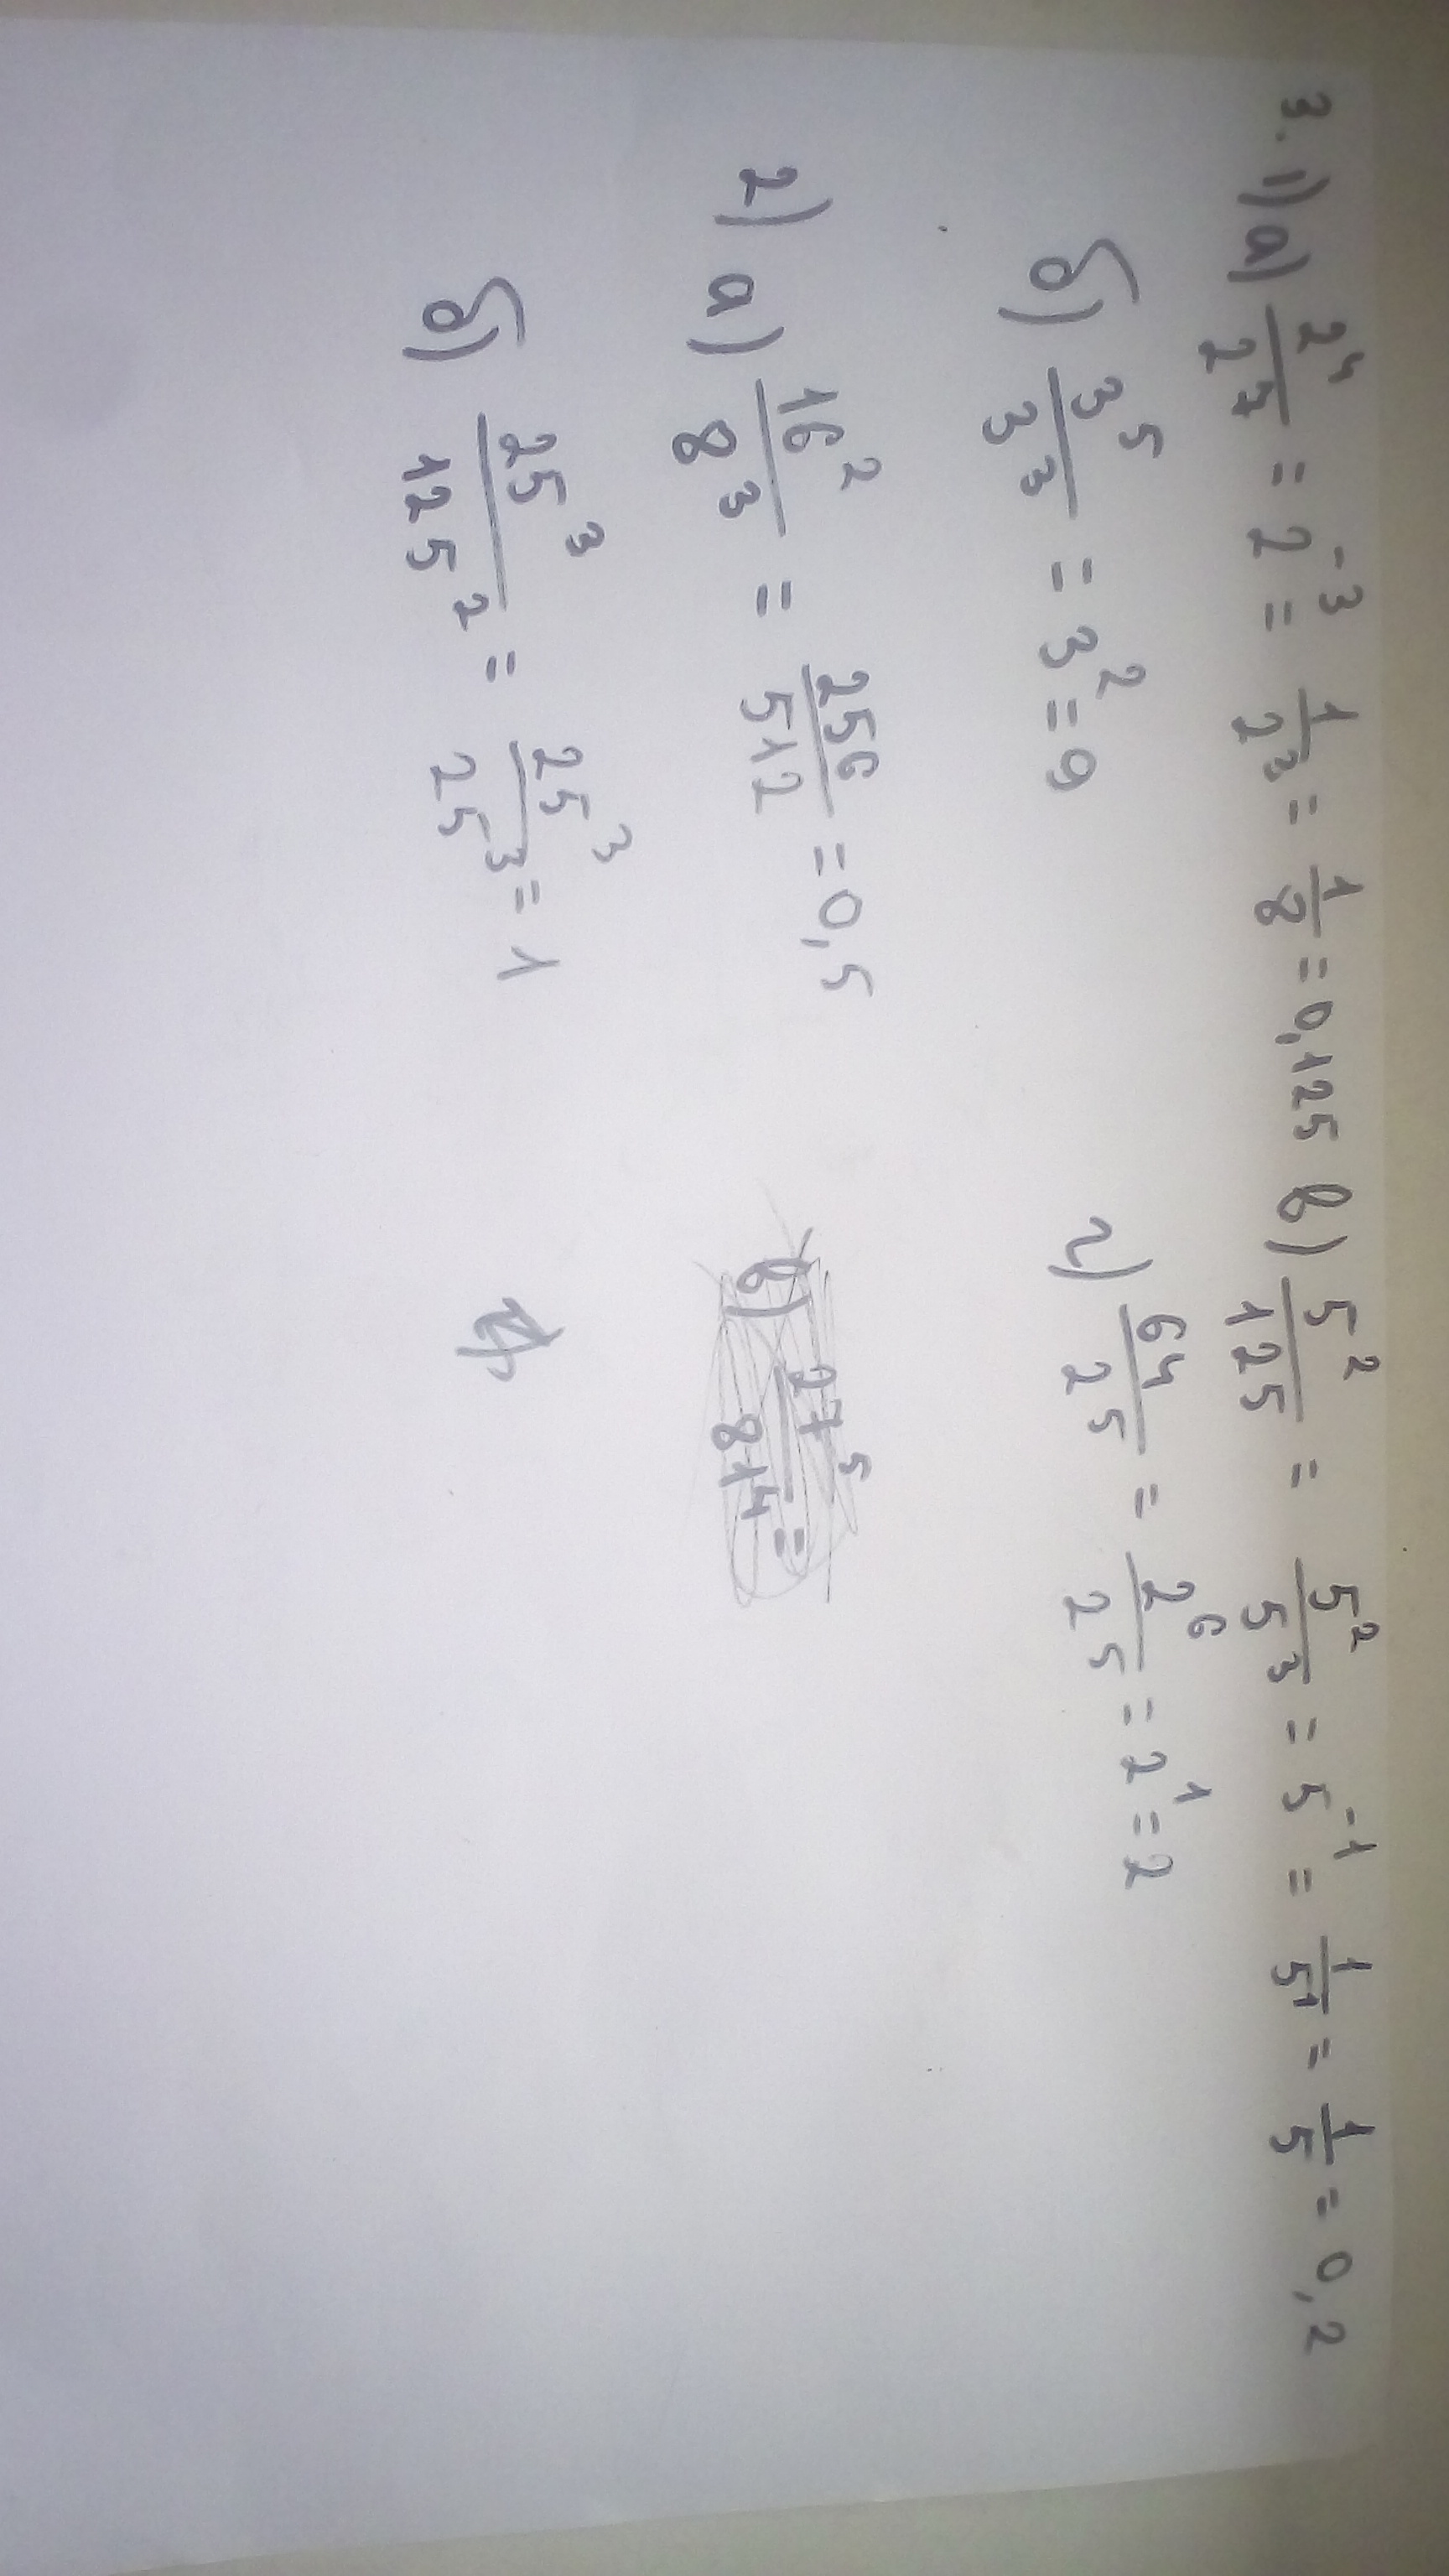 3. 1) а) 2⁴/2⁷ = 2⁻³ = 1/2³ = 1/8 = 0,125 в) 5²/125 = 5²/5³ = 5⁻¹ = 1/5¹ = 1/5 = 0,2
б) 3⁵/3³ = 3² = 9 г) 64/2⁵ = 2⁶/2⁵ = 2¹ = 2
2) а) 16²/8³ = 256/512 = 0,5 в) 27⁵/81⁴ =
б) 25³/125² = 25³/25³ = 1